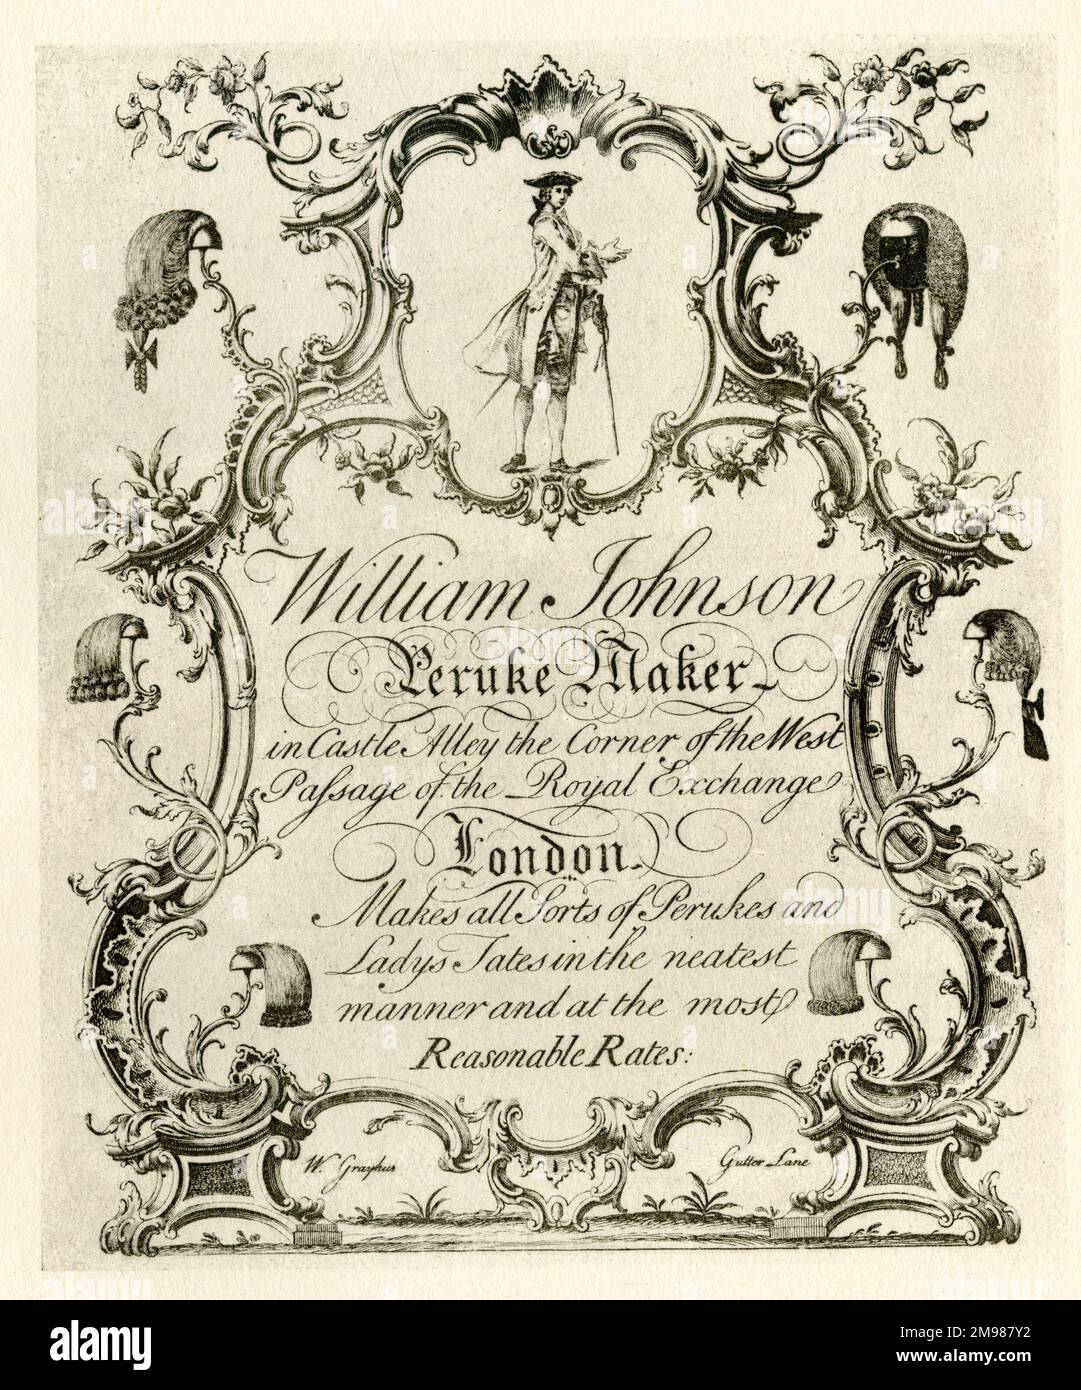 William Johnson
Peruke Maker
in Castle Alley the Corner of the West
Paſsage of the Royal Exchange
London
Makes all Sorts of Perukes and
Ladys Tates in the neatest
manner and at the most
Reasonable Rates:
Gutter Lane
alamy
Image ID: 2M987Y2
www.alamy.com